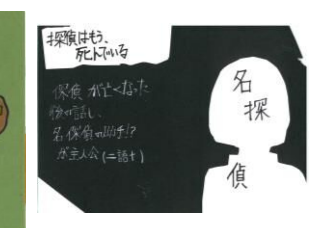 探偵はもう、
死んでいる
探偵が亡くなった
後の話し、
名探偵の助手!?
が主人公(二語十)
名探偵